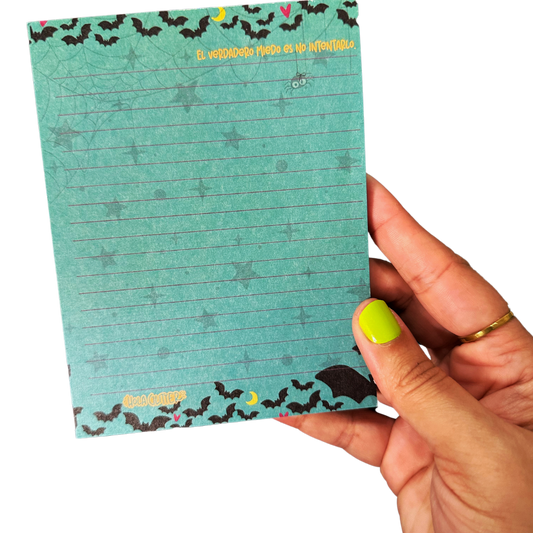 El verdadero miedo es no intentarlo.